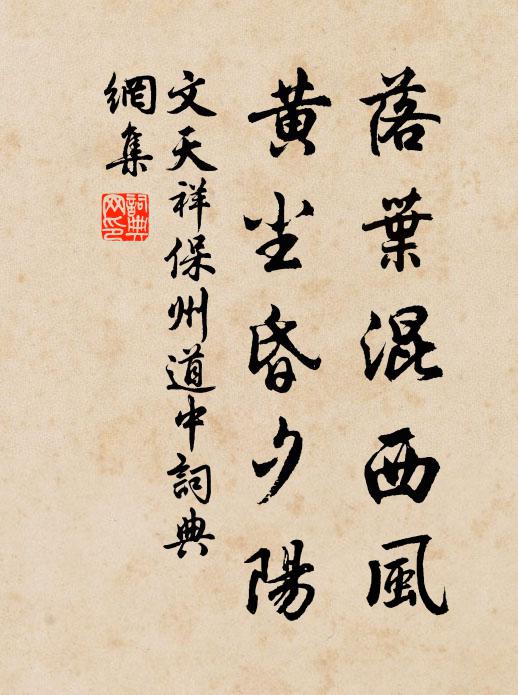 落葉混西風
黄尘昏夕陽
文天祥保州道中詞典
網集
詞典
网印